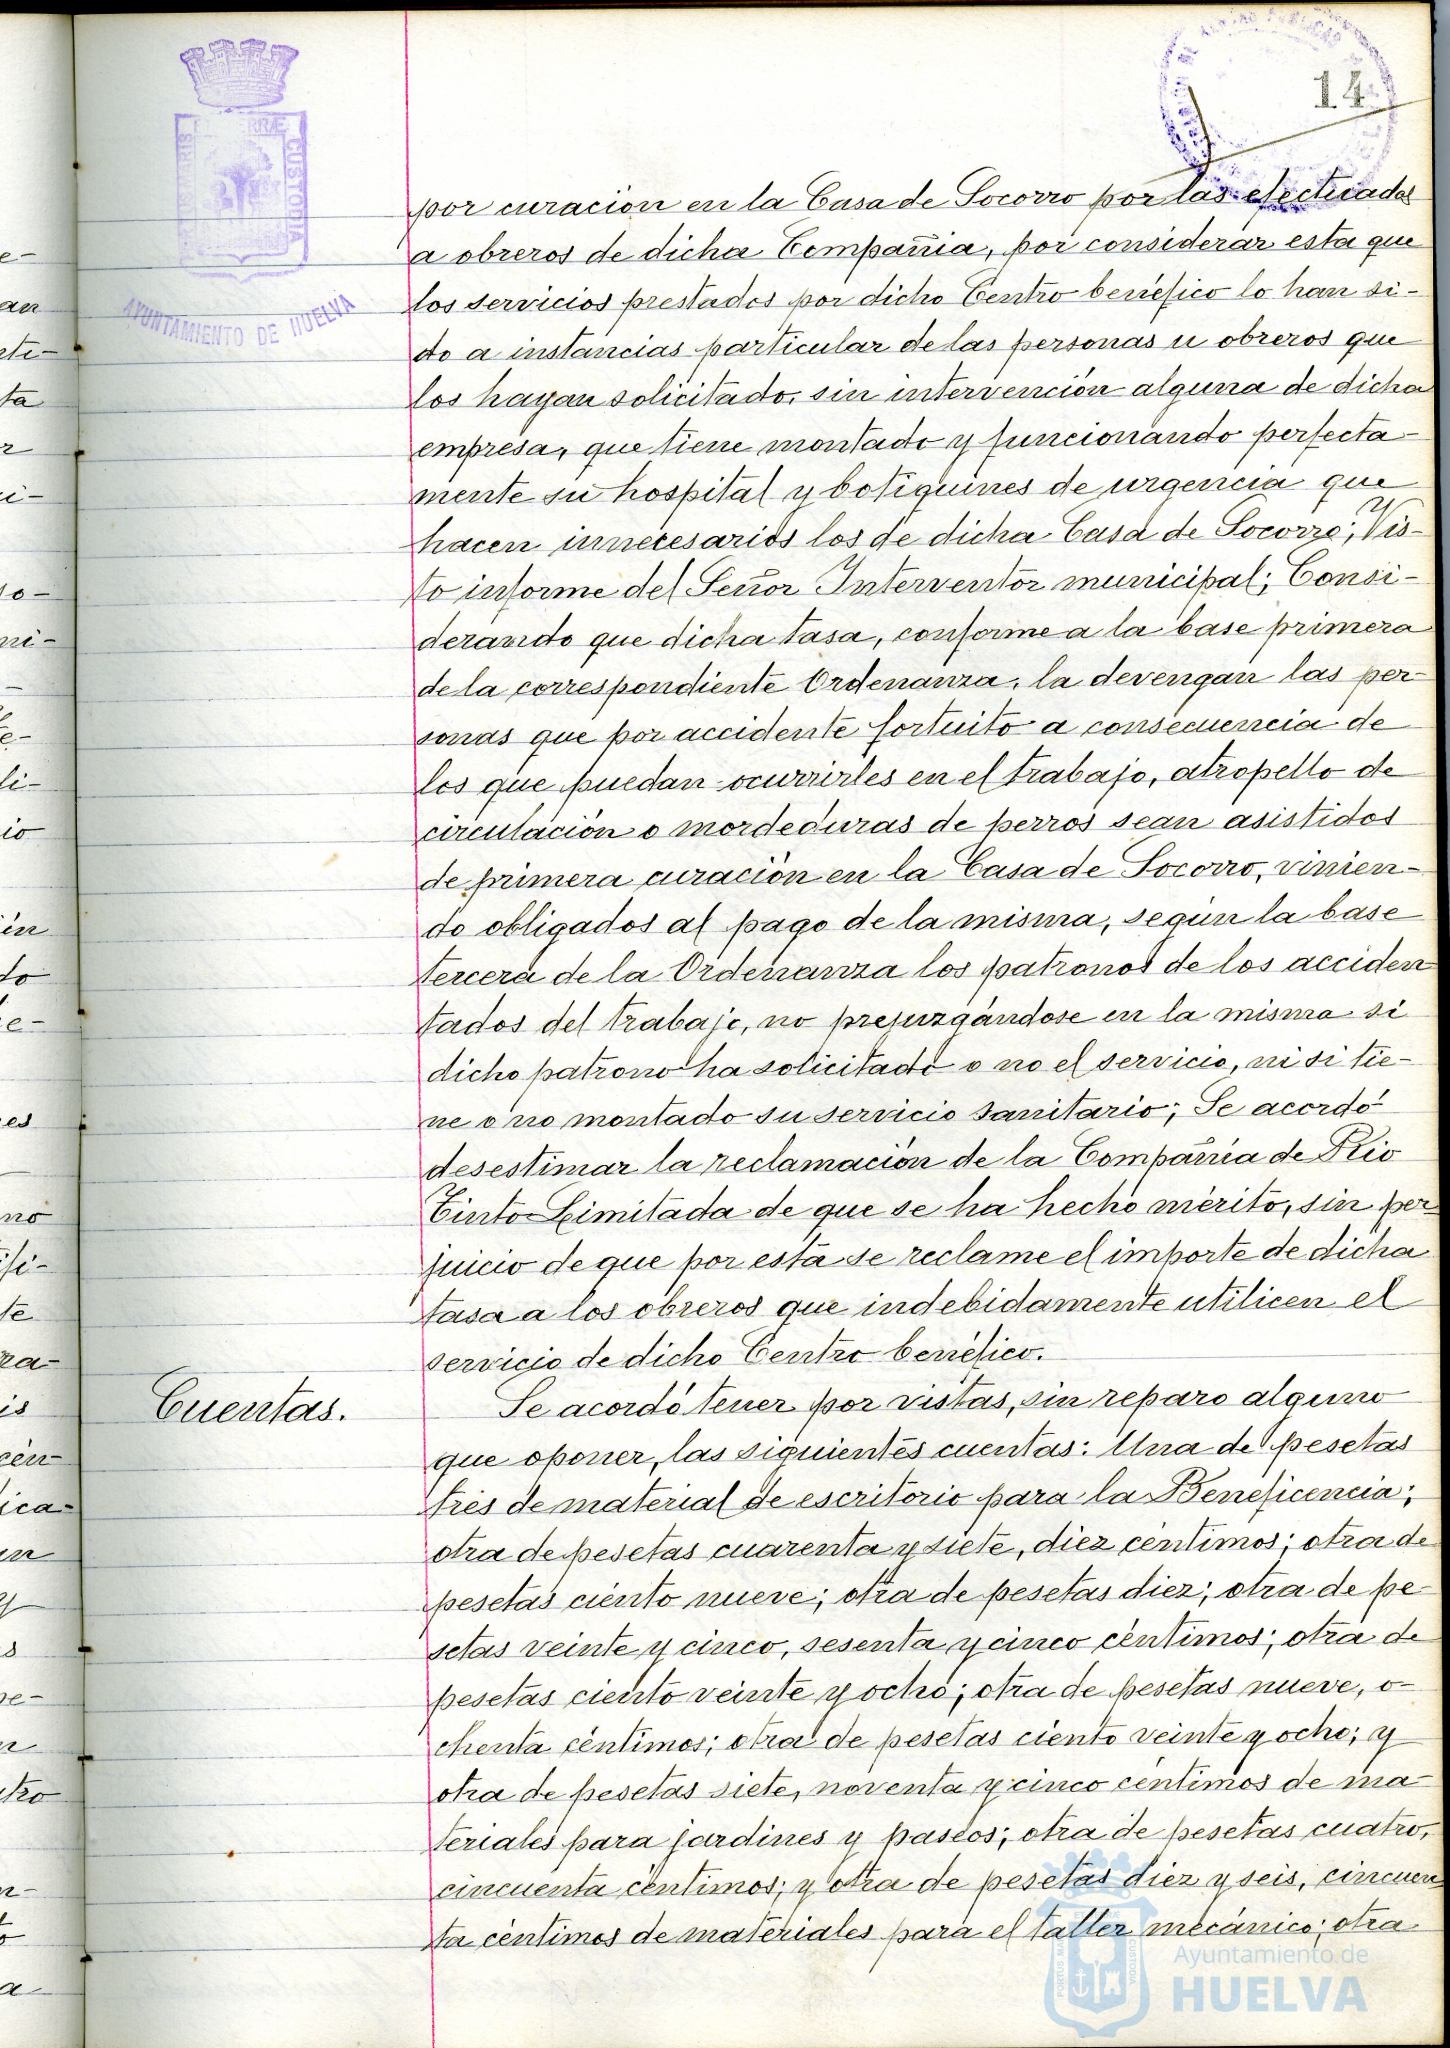 14
AYUNTAMIENTO DE HUELVA
por curación en la Casa de Socorro por las efectuadas
a obreros de dicha Compañia, por considerar esta que
los servicios prestados por dicho Centro benéfico lo han si-
do a instancias particular de las personas u obreros que
los hayan solicitado, sin intervención alguna de dicha
empresa, que tiene montado y funcionando perfecta-
mente su hospital y botiquines de urgencia que
hacen innecesarios los de dicha Casa de Socorro; Vis-
to informe del Señor Interventor municipal; Consi-
derando que dicha tasa, conforme a la base primera
de la correspondiente Ordenanza, la devengan las per-
sonas que por accidente fortuito a consecuencia de
los que puedan ocurrirles en el trabajo, atropello de
circulación o mordeduras de perros sean asistidos
de primera curación en la Casa de Socorro, vinien-
do obligados al pago de la misma, según la base
tercera de la Ordenanza los patronos de los acciden
tados del trabajo, no prejuzgándose en la misma si
dicho patrono ha solicitado o no el servicio, ni si tie-
ne o no montado su servicio sanitario; Se acordó
desestimar la reclamación de la Compañia de Rio
Tinto Limitada de que se ha hecho mérito, sin per
juicio de que por esta se reclame el importe de dicha
tasa a los obreros que indebidamente utilicen el
servicio de dicho Centro benéfico.
Cuentas.
Se acordó tener por vistas, sin reparo alguno
que oponer, las siguientes cuentas: Una de pesetas
tres de material de escritorio para la Beneficencia;
otra de pesetas cuarenta y siete, diez céntimos; otra de
pesetas ciento nueve; otra de pesetas diez; otra de pe
setas veinte y cinco, sesenta y cinco céntimos; otra de
pesetas ciento veinte y ocho; otra de pesetas nueve, o-
chenta céntimos; otra de pesetas ciento veinte y ocho; y
otra de pesetas siete, noventa y cinco céntimos de ma-
teriales para jardines y paseos; otra de pesetas cuatro,
cincuenta céntimos; y otra de pesetas diez y seis, cincuen
ta céntimos de materiales para el taller mecánico; otra
Ayuntamiento de
HUELVA